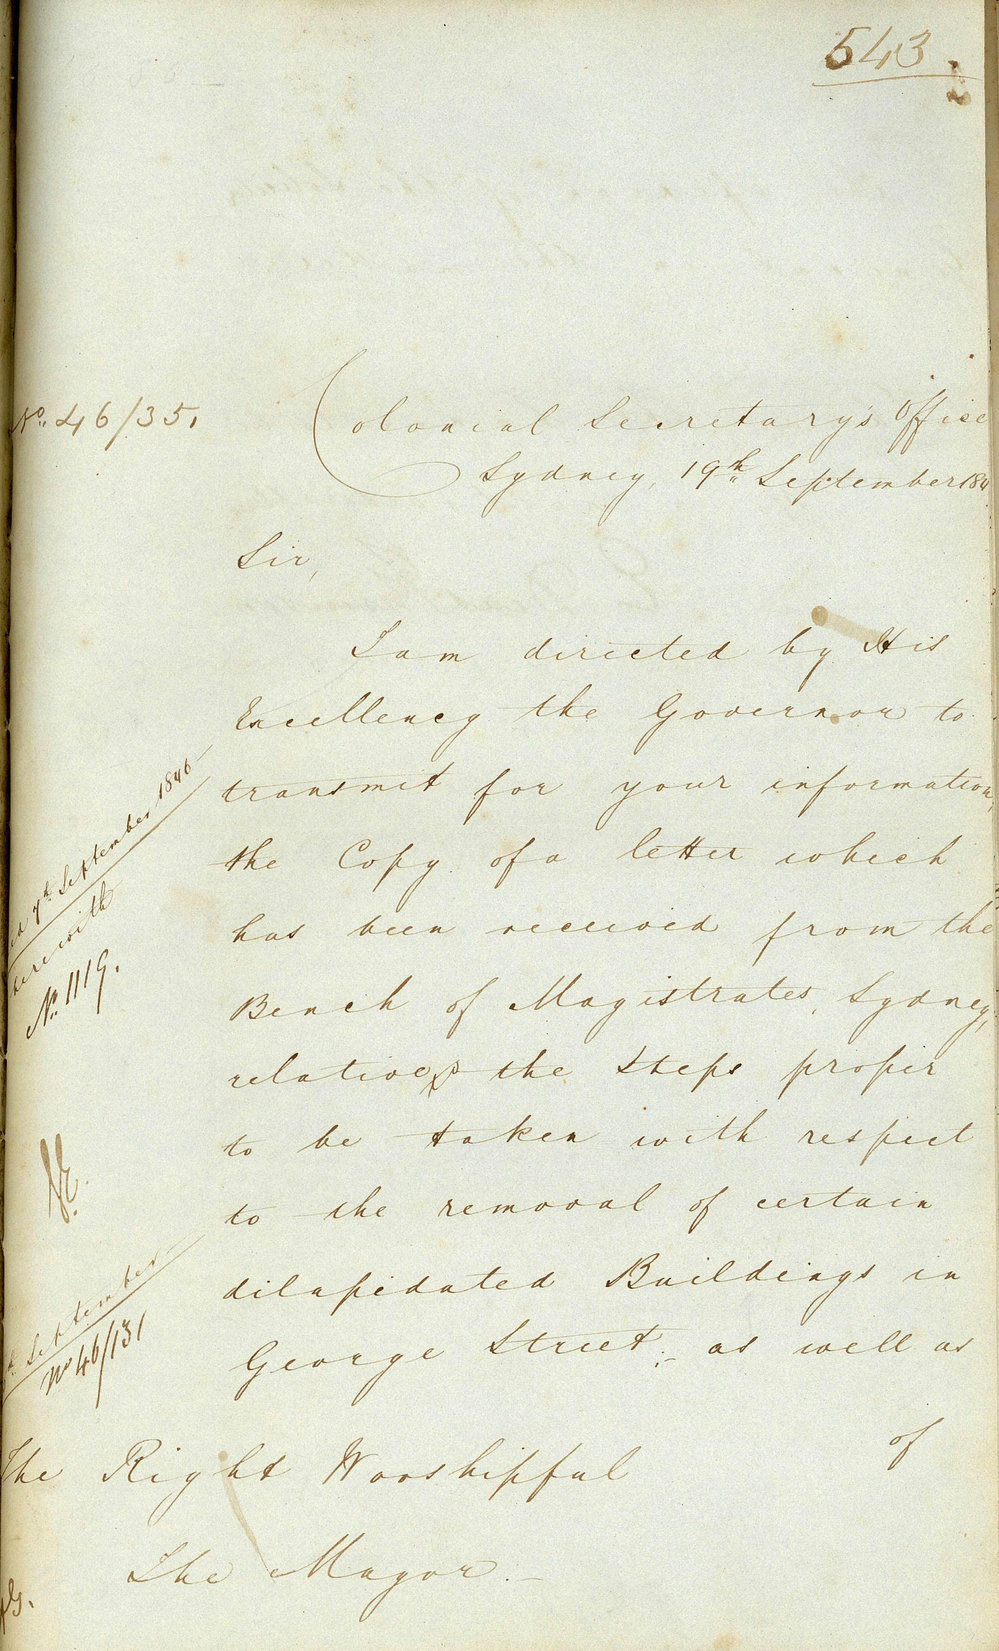 543.
No. 46/35.
Colonial Secretary's Office
Sydney, 19th September 184
Sir,
I am directed by His
Excellency the Governor to
transmit for your information,
the Copy of a letter which
has been received from the
Bench of Magistrates, Sydney,
relative to the Steps proper
to be taken with respect
to the removal of certain
dilapidated Buildings in
George Street; - as well as
of
The Right Worshipful
The Mayor. -
ed 7th September 1846
herewith
No. 1119.
September
No 46/131